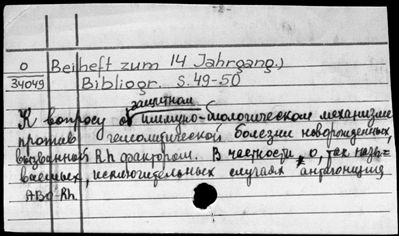 -2-
О Beiheft zum 14 Jahrgang.)
34049 Bibliogr. S. 49-50
защитном
К вопросу о иммуно-биологическом механизме
против гемолитической болезни новорожденных,
вызванной Rh фактором. В частности, о, так назы=
ваемых, исключительных случаях антагонизма
ABO Rh.